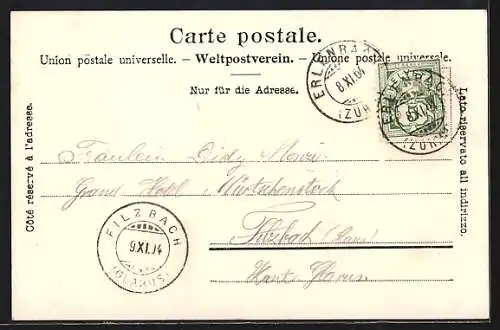 Carte postale.
Union postale universelle. – Weltpostverein. – Unione postale universale.
Nur für die Adresse.
Côté réservé à l'adresse.
Lato riservato all indirizzo.
ERLENBACH
8 XI.04
(ZÜRICH)
ERLENBACH
8 XI.04
(ZÜRICH)
Fräulein Didy
Grand Hotel Mürtschenstock
Filzbach
FILZBACH
9 XI.04
(GLARUS)